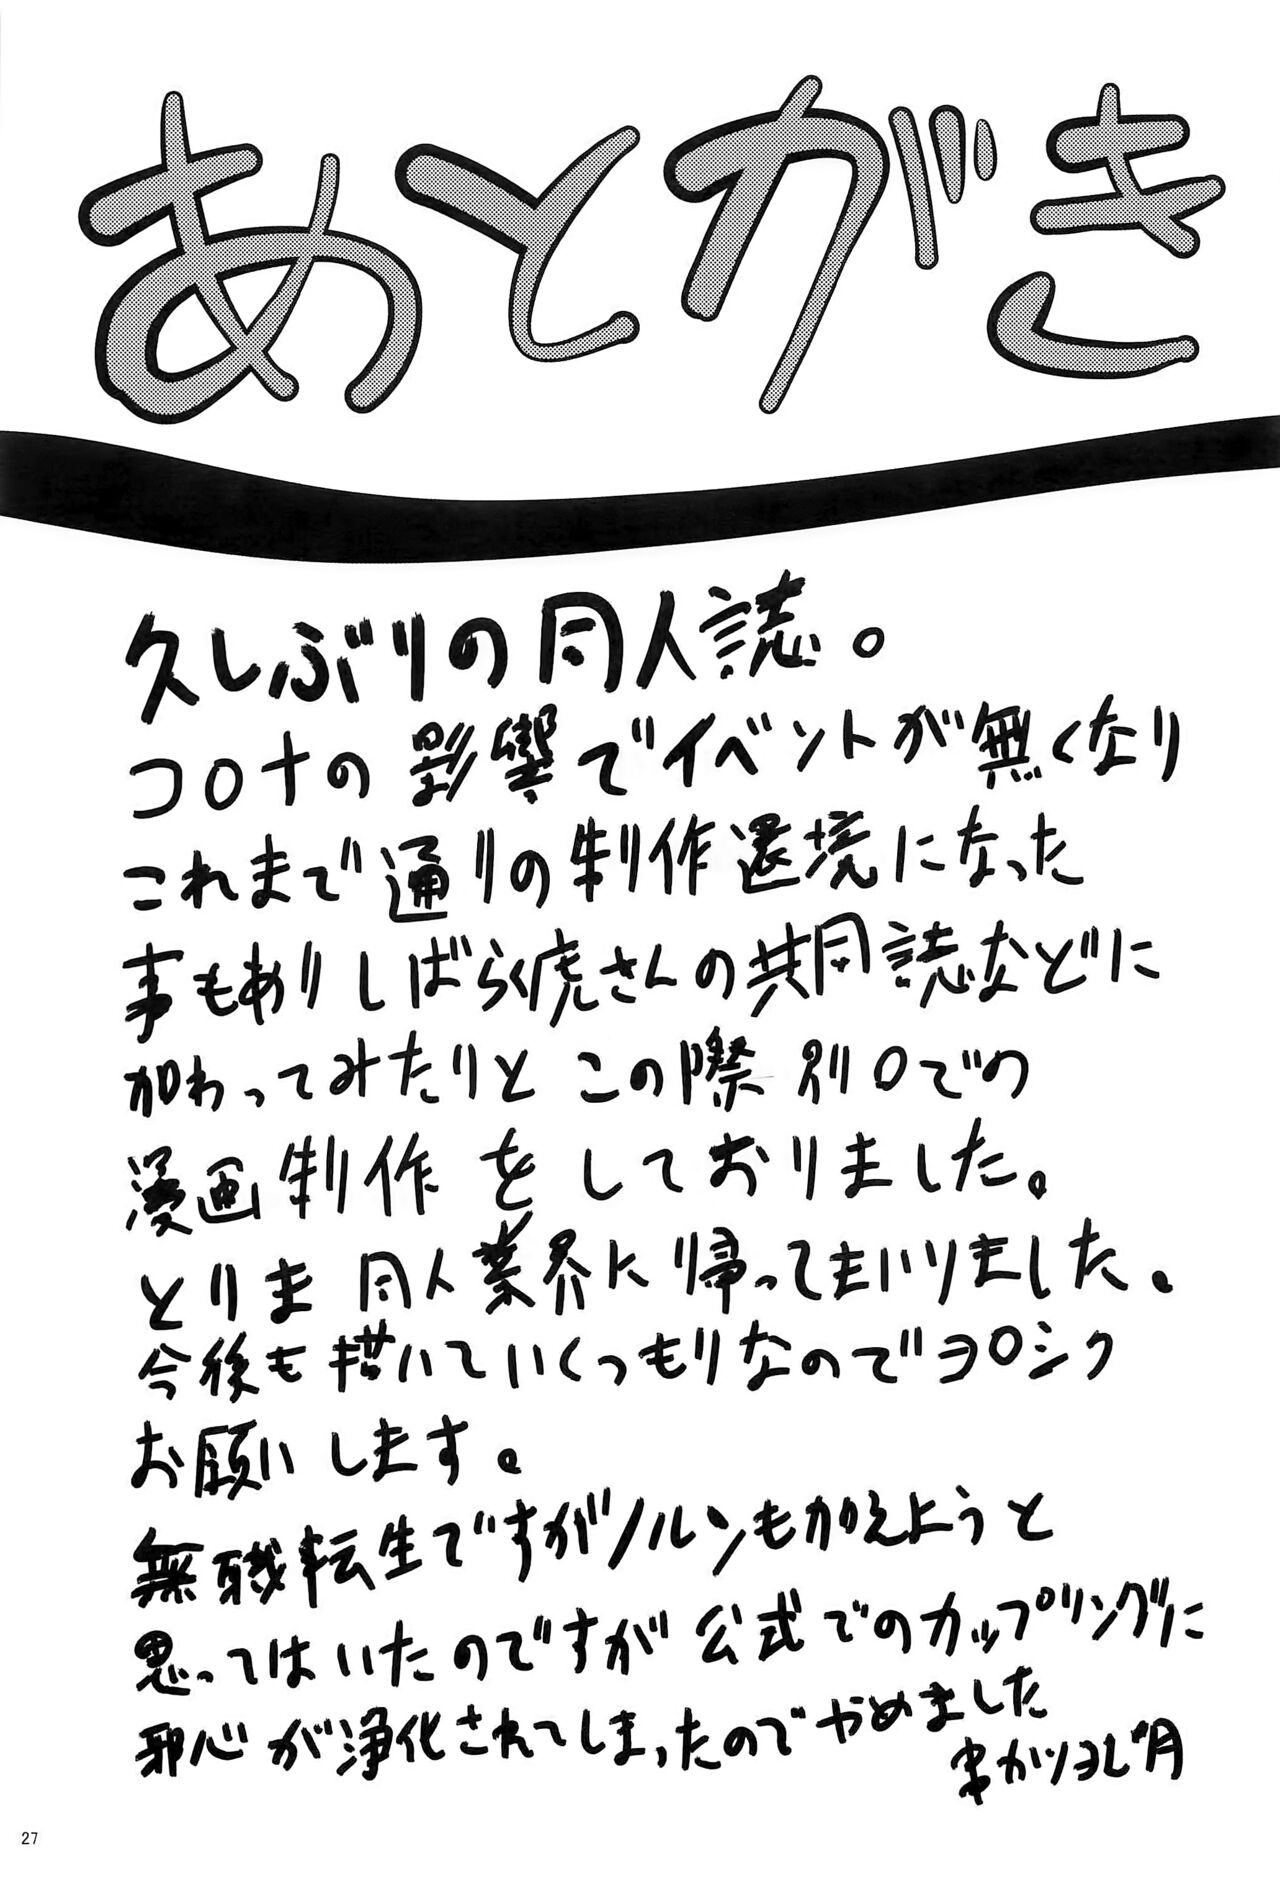 あとがき
久しぶりの同人誌。
コロナの影響でイベントが無くなり
これまで通りの制作環境になった
事もありしばらく虎さんの共同誌などに
加わってみたりと この際 別口での
漫画制作 をしておりました。
とりま 同人業界に帰ってまいりました。
今後も描いていくつもりなのでヨロシク
お願いします。
無職転生ですがノルンもかえようと
思ってはいたのですが公式でのカップリングに
邪心が浄化されてしまったのでやめました
串かツヨし
27